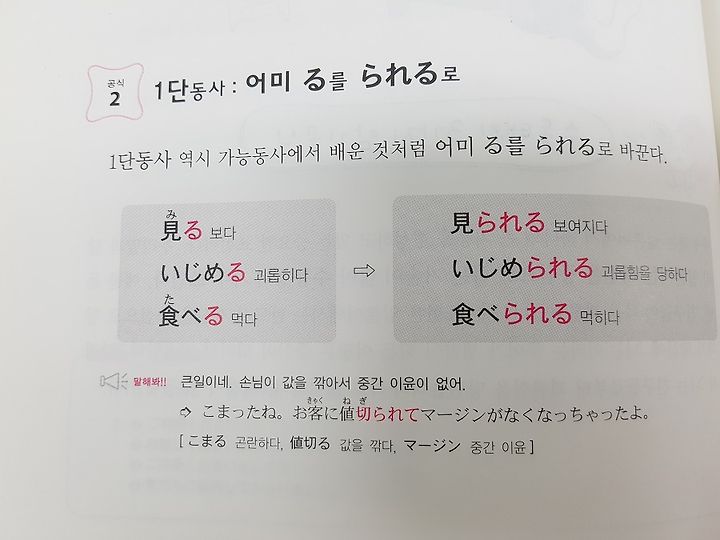 공식
2
1단동사 : 어미 る를 られる로
1단동사 역시 가능동사에서 배운 것처럼 어미 る를 られる로 바꾼다.
み
見る 보다
いじめる 괴롭히다
た
食べる 먹다
⇨
見られる 보여지다
いじめられる 괴롭힘을 당하다
食べられる 먹히다
말해봐!! 큰일이네. 손님이 값을 깎아서 중간 이윤이 없어.
きゃく ね ぎ
➩ こまったね。お客に値切られてマージンがなくなっちゃったよ。
[ こまる 곤란하다, 値切る 값을 깎다, マージン 중간 이윤 ]